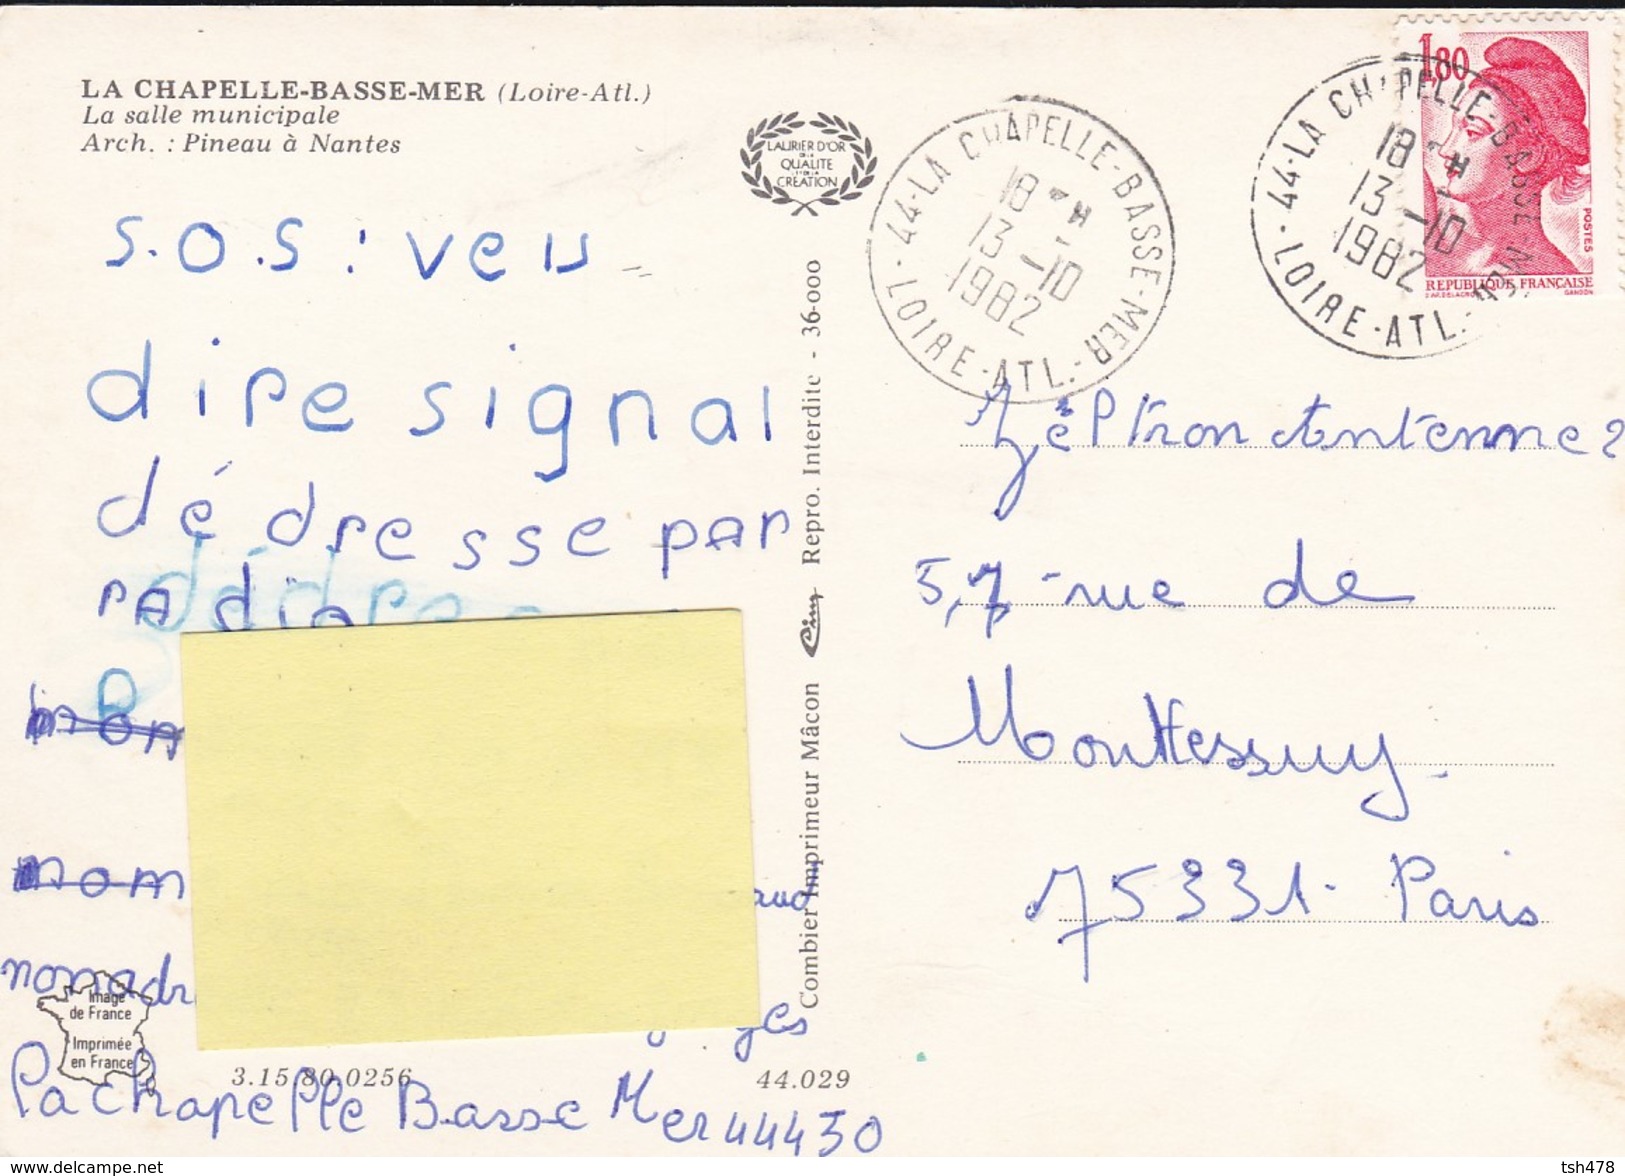 LA CHAPELLE-BASSE-MER (Loire-Atl.)
La salle municipale
Arch. : Pineau à Nantes
LAURIER D'OR
DE LA
QUALITE
ET DE LA
CREATION
S.O.S : veu
dire signal
dé dresse par
radio
mon
nom
aud
nomadr
ges
La chapelle Basse Mer 44430
Image
de France
Imprimée
en France
3.15 80 0256
44.029
Combier Imprimeur Mâcon Cim Repro. Interdite - 36-000
44-LA CHAPELLE-BASSE-MER
18 H
13 -10
1982
LOIRE-ATL.
44-LA CHAPELLE-BASSE-MER
18 H
13 -10
1982
LOIRE-ATL.
1,80
POSTES
REPUBLIQUE FRANÇAISE
D'AP. DELACROIX GANDON
Antenne 2
5,7 rue de
Monttessuy -
75331 - Paris
tsh478